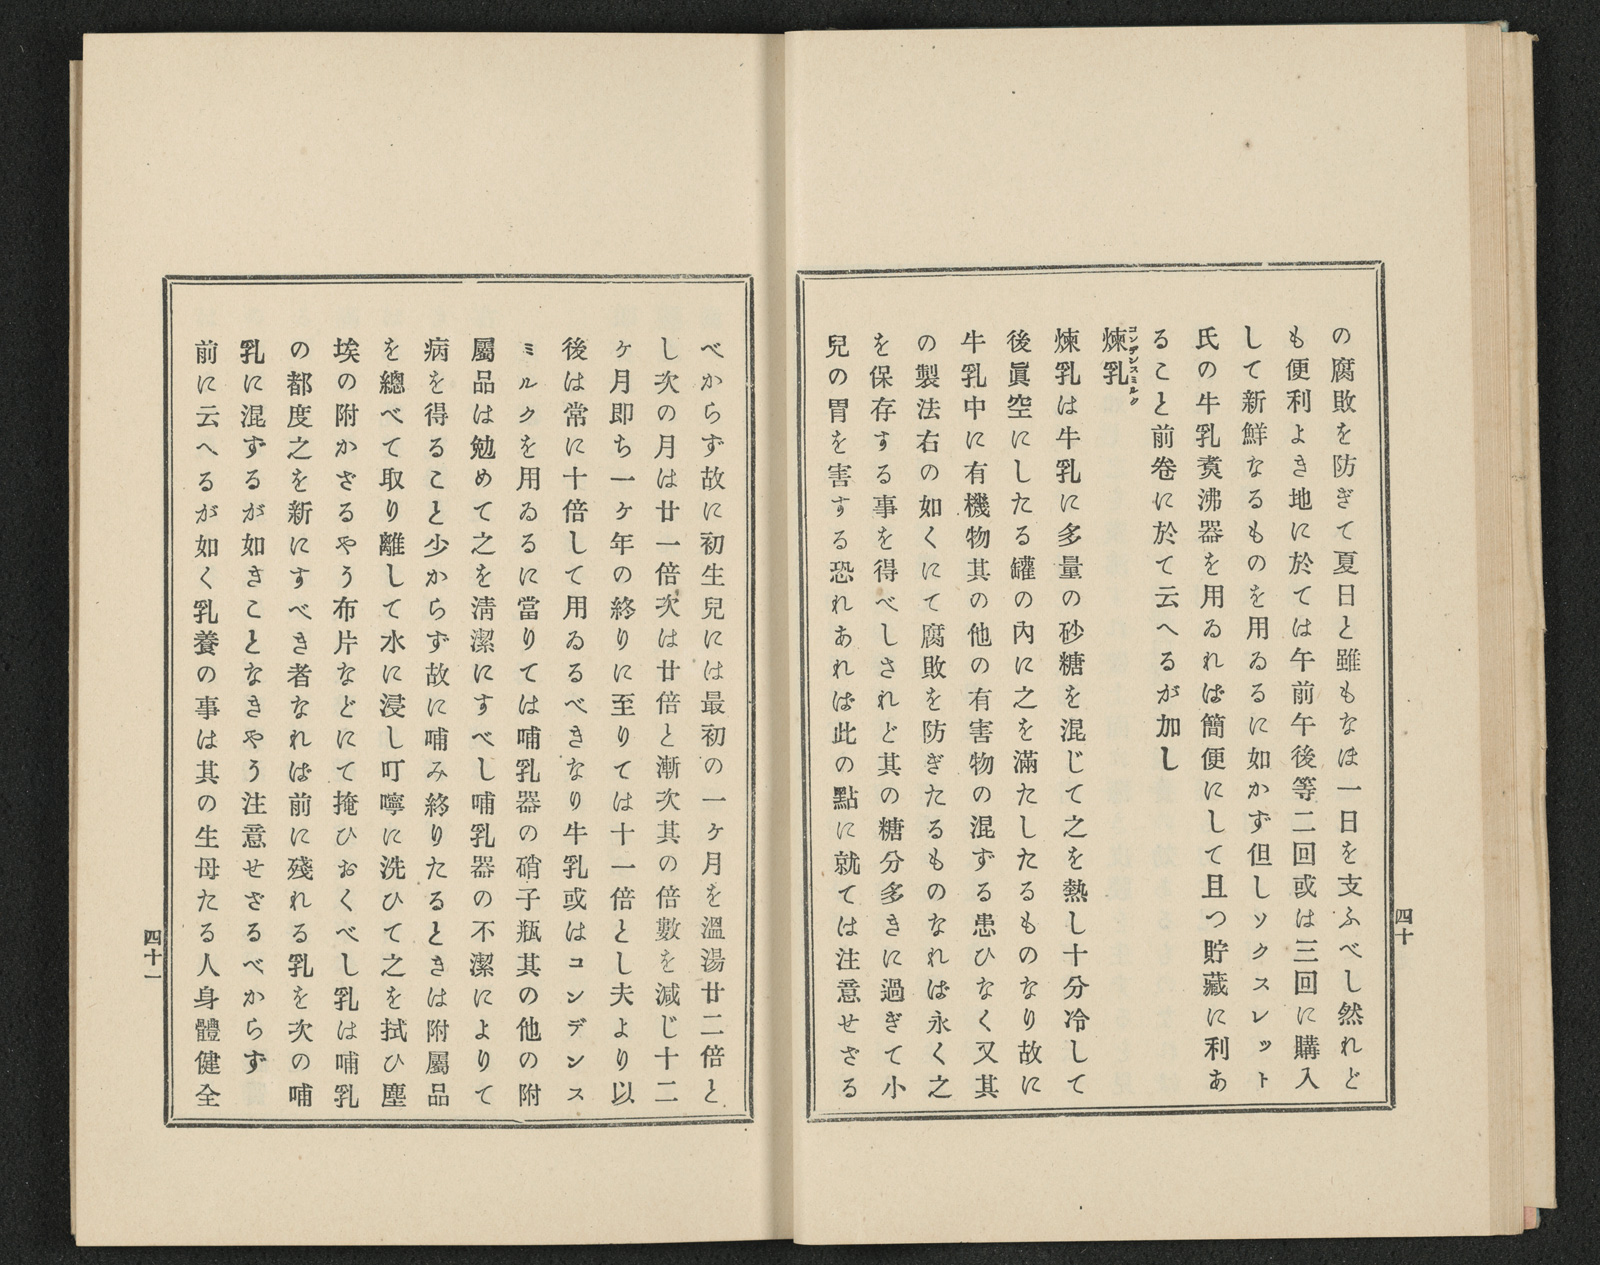 の腐敗を防ぎて夏日と雖もなほ一日を支ふべし然れど
も便利よき地に於ては午前午後等二回或は三回に購入
して新鮮なるものを用ゐるに如かず但しソクスレット
氏の牛乳煑沸器を用ゐれば簡便にして且つ貯藏に利あ
ること前卷に於て云へるが加し
煉乳
コンデンスミルク
煉乳は牛乳に多量の砂糖を混じて之を熱し十分冷して
後眞空にしたる罐の內に之を滿たしたるものなり故に
牛乳中に有機物其の他の有害物の混ずる患ひなく又其
の製法右の如くにて腐敗を防ぎたるものなれば永く之
を保存する事を得べしされど其の糖分多きに過ぎて小
兒の胃を害する恐れあれば此の點に就ては注意せざる
四十
べからず故に初生兒には最初の一ヶ月を溫湯廿二倍と
し次の月は廿一倍次は廿倍と漸次其の倍數を減じ十二
ヶ月即ち一ヶ年の終りに至りては十一倍とし夫より以
後は常に十倍して用ゐるべきなり牛乳或はコンデンス
ミルクを用ゐるに當りては哺乳器の硝子瓶其の他の附
屬品は勉めて之を淸潔にすべし哺乳器の不潔によりて
病を得ること少からず故に哺み終りたるときは附屬品
を總べて取り離して水に浸し叮嚀に洗ひて之を拭ひ塵
埃の附かざるやう布片などにて掩ひおくべし乳は哺乳
の都度之を新にすべき者なれば前に殘れる乳を次の哺
乳に混ずるが如きことなきやう注意せざるべからず
前に云へるが如く乳養の事は其の生母たる人身體健全
四十一